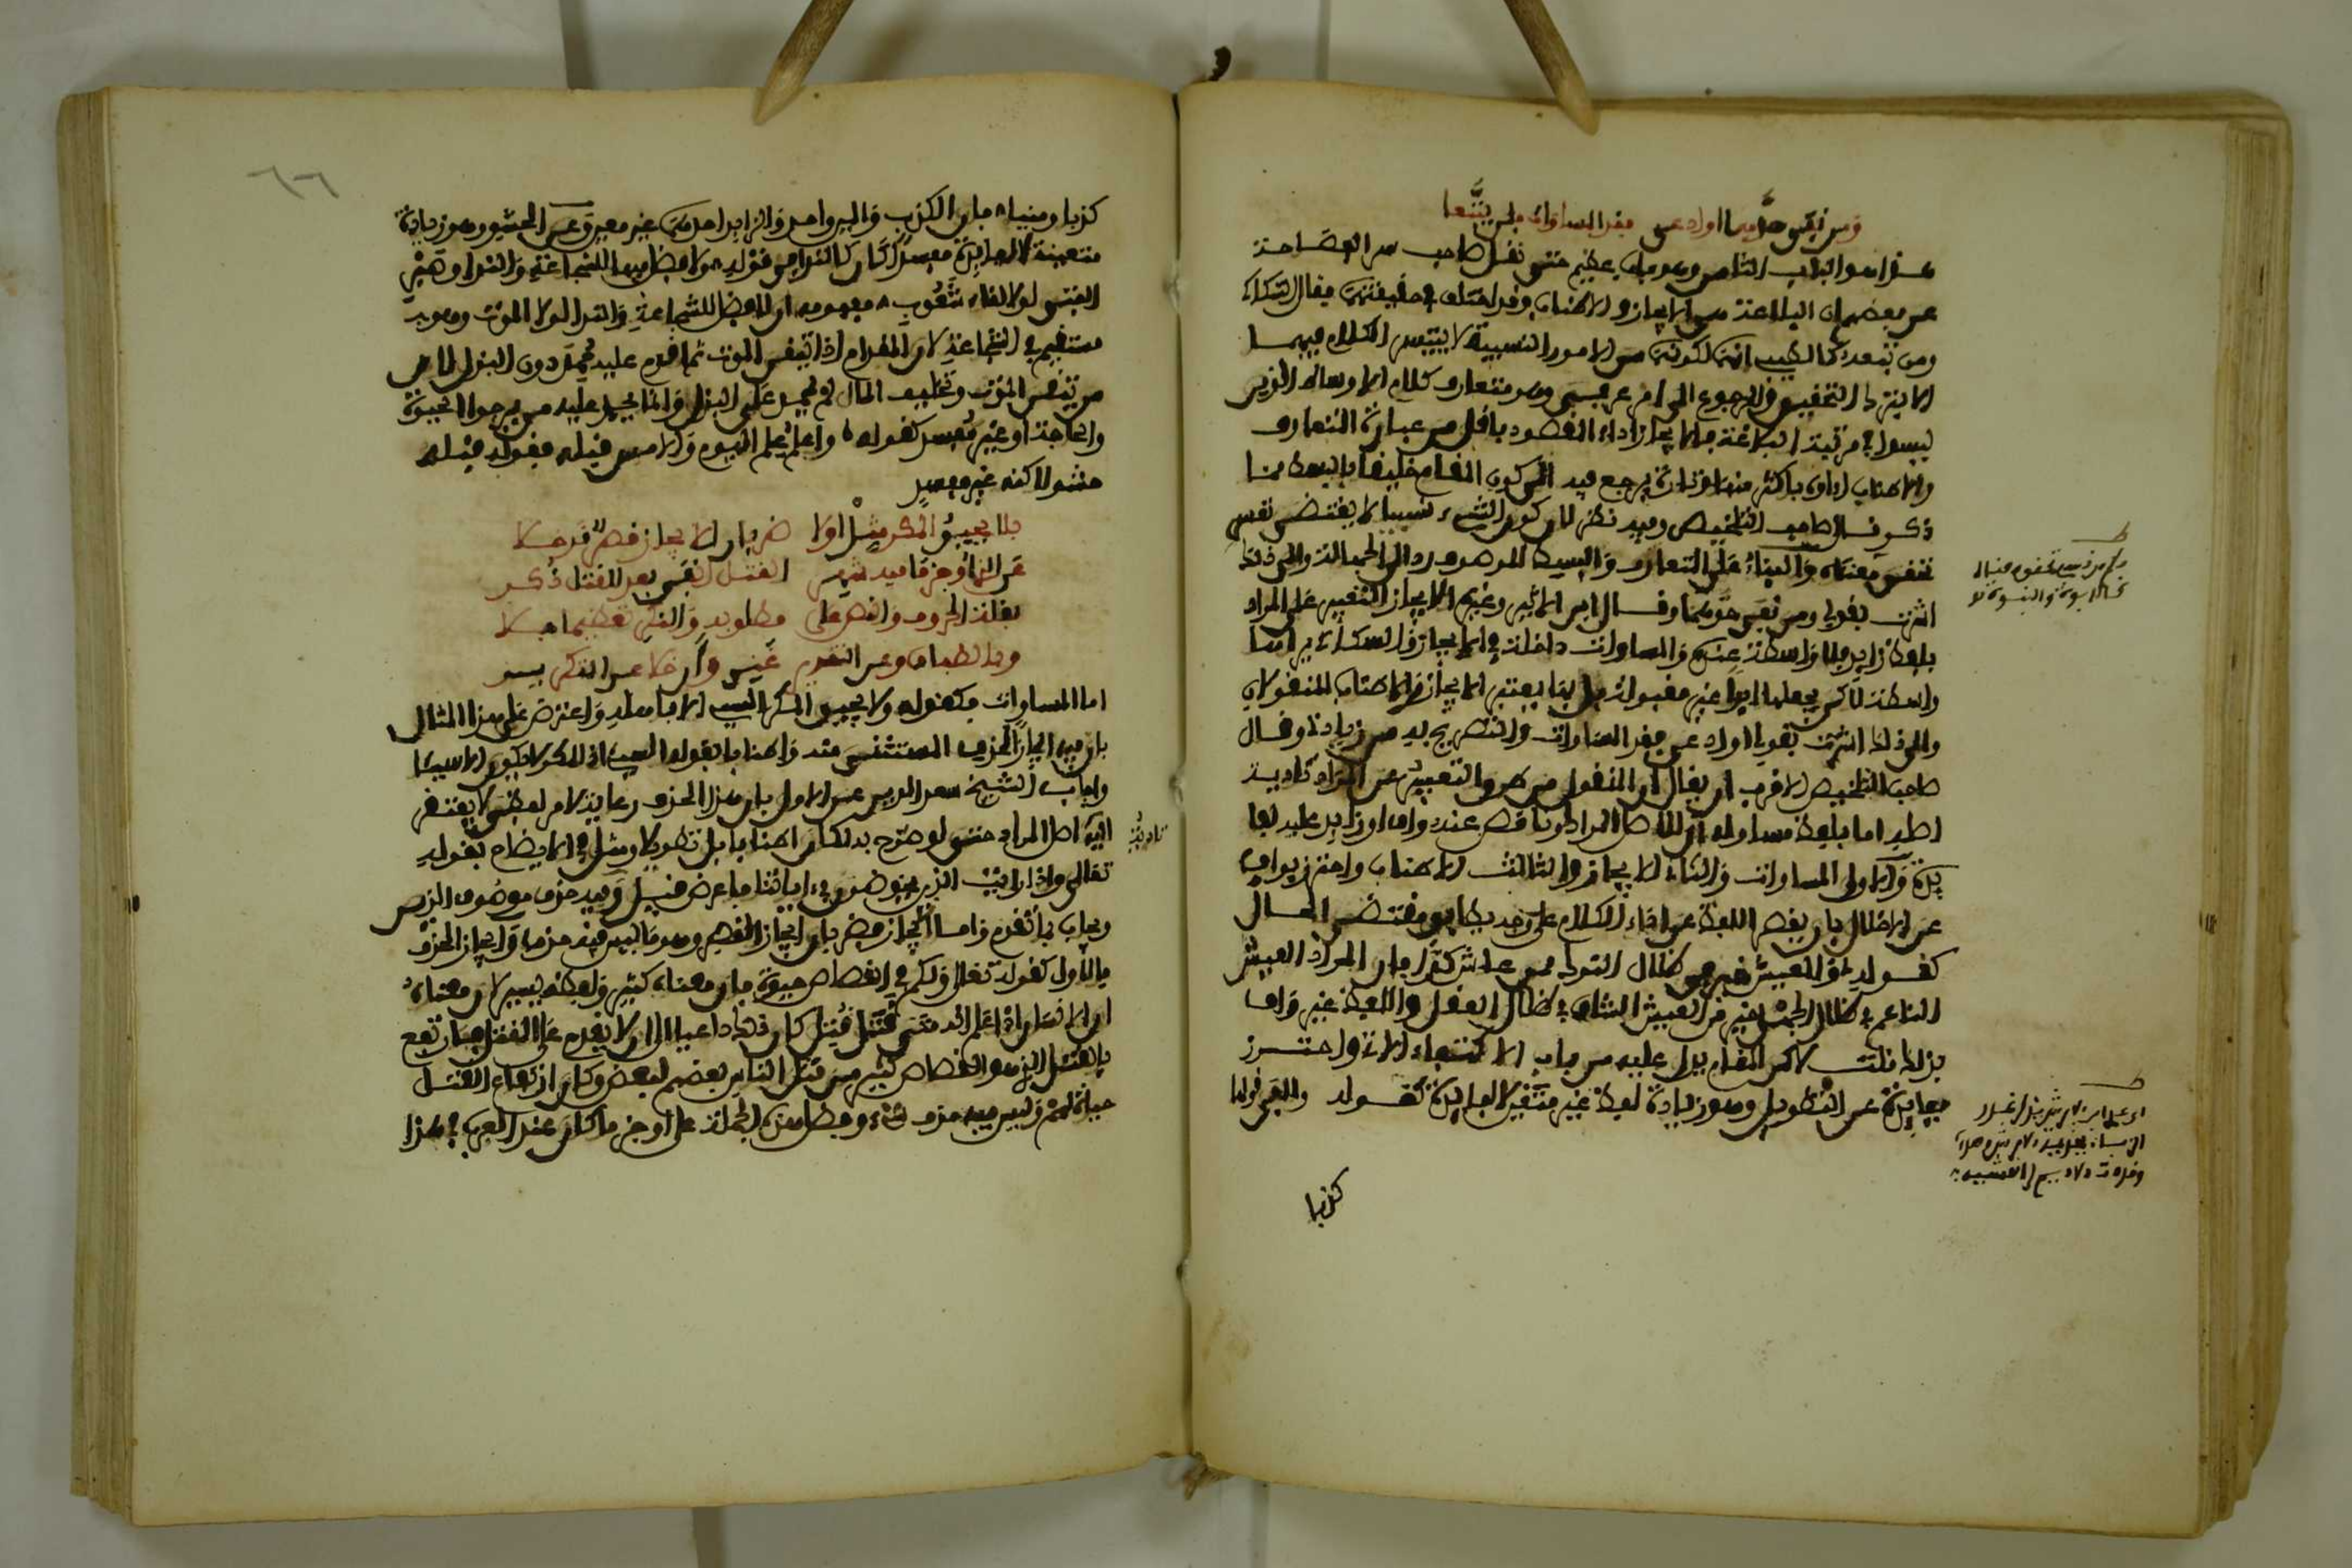 ومن نفى حدهما اولا دعى فقد المساوات فلن يتبعا
هذا هو الباب الثامن وهو باب عظيم حتى نقل صاحب سر الفصاحة
عن بعضهم ان البلاغة هي الايجاز والاطناب وقد اختلف في حقيقتهما فقال السكاكي
ومن تبعه كالطيبي انهما لكونهما من الامور النسبية لا يتيسر الكلام فيهما
الا بترك التحقيق والرجوع الى امر عرفي وهو متعارف كلام الاوساط الذين
ليسوا في مرتبة البلاغة فالايجاز اداء المقصود باقل من عبارة المتعارف
والاطناب اداؤه باكثر منها وتارة يرجع فيه الى كون المقام خليقا بابسط منا
ذكر قال صاحب التلخيص وفيه نظر لان كون الشيء نسبيا لا يقتضي تعسر
تحقيق معناه والبناء على المتعارف والبسيط الموصوف رد الى الجهالة والى ذلك
اشرت بقولي ومن نفى حدهما وقال ابن الاثير وغيره الايجاز التعبير على المراد
بلفظ زايد بلا واسطة عنهما والمساوات داخلة في الايجاز والسكاكي يراها
واسطة لاكن يجعلها ايضا غير مقبولة
والى ذلك اشرت بقولي اولا دعى فقد المساوات والتصريح به من زيادتي وقال
صاحب التلخيص الاقرب ان يقال ان المنقول من طرق التعبير عن المراد تادية
اصله اما بلفظ مساو له اي للاصل المراد او ناقص عنه واف او زايد عليه لفا
يدة والاول المساوات والثاني الايجاز والثالث الاطناب واحترز بواف
عن الاخلال بان يقصر اللفظ عن اداء الكلام على وجه يطابق مقتضى الحال
كقوله والعيش خير في ظلال النوك ممن عاش كدا فان المراد العيش
الناعم في ظلال الجهل خير من العيش الشاق في ظلال العقل واللفظ غير واف
بذلك قلت لاكن المقام يدل عليه من باب الاكتفاء الاتي واحترز
بفايدة عن التطويل وهو زيادة لفظ غير متعين لا لفايدة كقوله والفى قولها
كذبا
كذبا ومينا فان الكذب والمين واحد والزايد احدهما غير معين وعن الحشو وهو زيادة
متعينة لا لفايدة مفسدا كان كالندى في قوله ولا فضل فيها للشجاعة والندى وصبر
الفتى لولا لقاء شعوب فمفهومه ان لا فضل للشجاعة والندى لولا الموت وهو
مستقيم في الشجاعة لان المقدام اذا تيقن الموت ثم اقدم عليه حمد دون البذل لان
من تيقن الموت وتخليف المال لم يحمد على البذل وانما يحمد عليه من يرجوا الحيوة
والحاجة او غير مفسد كقوله واعلم علم اليوم والامس قبله فقوله قبله
حشو لاكنه غير مفسد
فلا يحيق المكر مثل اولا ضربان الايجاز قصر قد خلا
عن الحذف اوجز ما فيه شهر القتل انفى بعد للقتل ذكر
بقلة الحروف والنص على مطلوبه والنكر تعظيما جلا
وبالطباق وعن التقدير غنى وان خلا عن التكرير بسر
اما المساوات فكقوله ولا يحيق المكر السيئ الا باهله واعترض على هذا المثال
بان فيه ايجاز الحذف المستثنى منه واطنابا بقوله السيئ اذ المكر لا يكون الا سيئا
واجاب الشيخ سعد الدين عن الاول بان هذا الحذف رعاية لامر لفظي لا يفتقر
اليه اصل المراد حتى لو صرح به لكان اطنابا بل تطويلا ومثل في الايضاح بقوله
تعالى واذا رايت الذين يخوضون في اياتنا فاعرض قيل وفيه حذف موصوف الذين
ويجاب بما تقدم واما الايجاز فضربان ايجاز القصر وهو ما ليس فيه حذف وايجاز الحذف
فالاول كقوله تعالى ولكم في القصاص حيوة فان معناه كثير ولفظه يسير لان معناه
ان الانسان اذا علم انه متى قتل قتل كان ذلك داعيا الى ان لا يقدم على القتل فارتفع
بالقتل الذي هو القصاص كثير من قتل الناس بعضهم لبعض وكان ارتفاع القتل
حياة لهم وليس فيه حذف شيء وفضل هذه الجملة على اوجز ما كان عند العرب في هذا